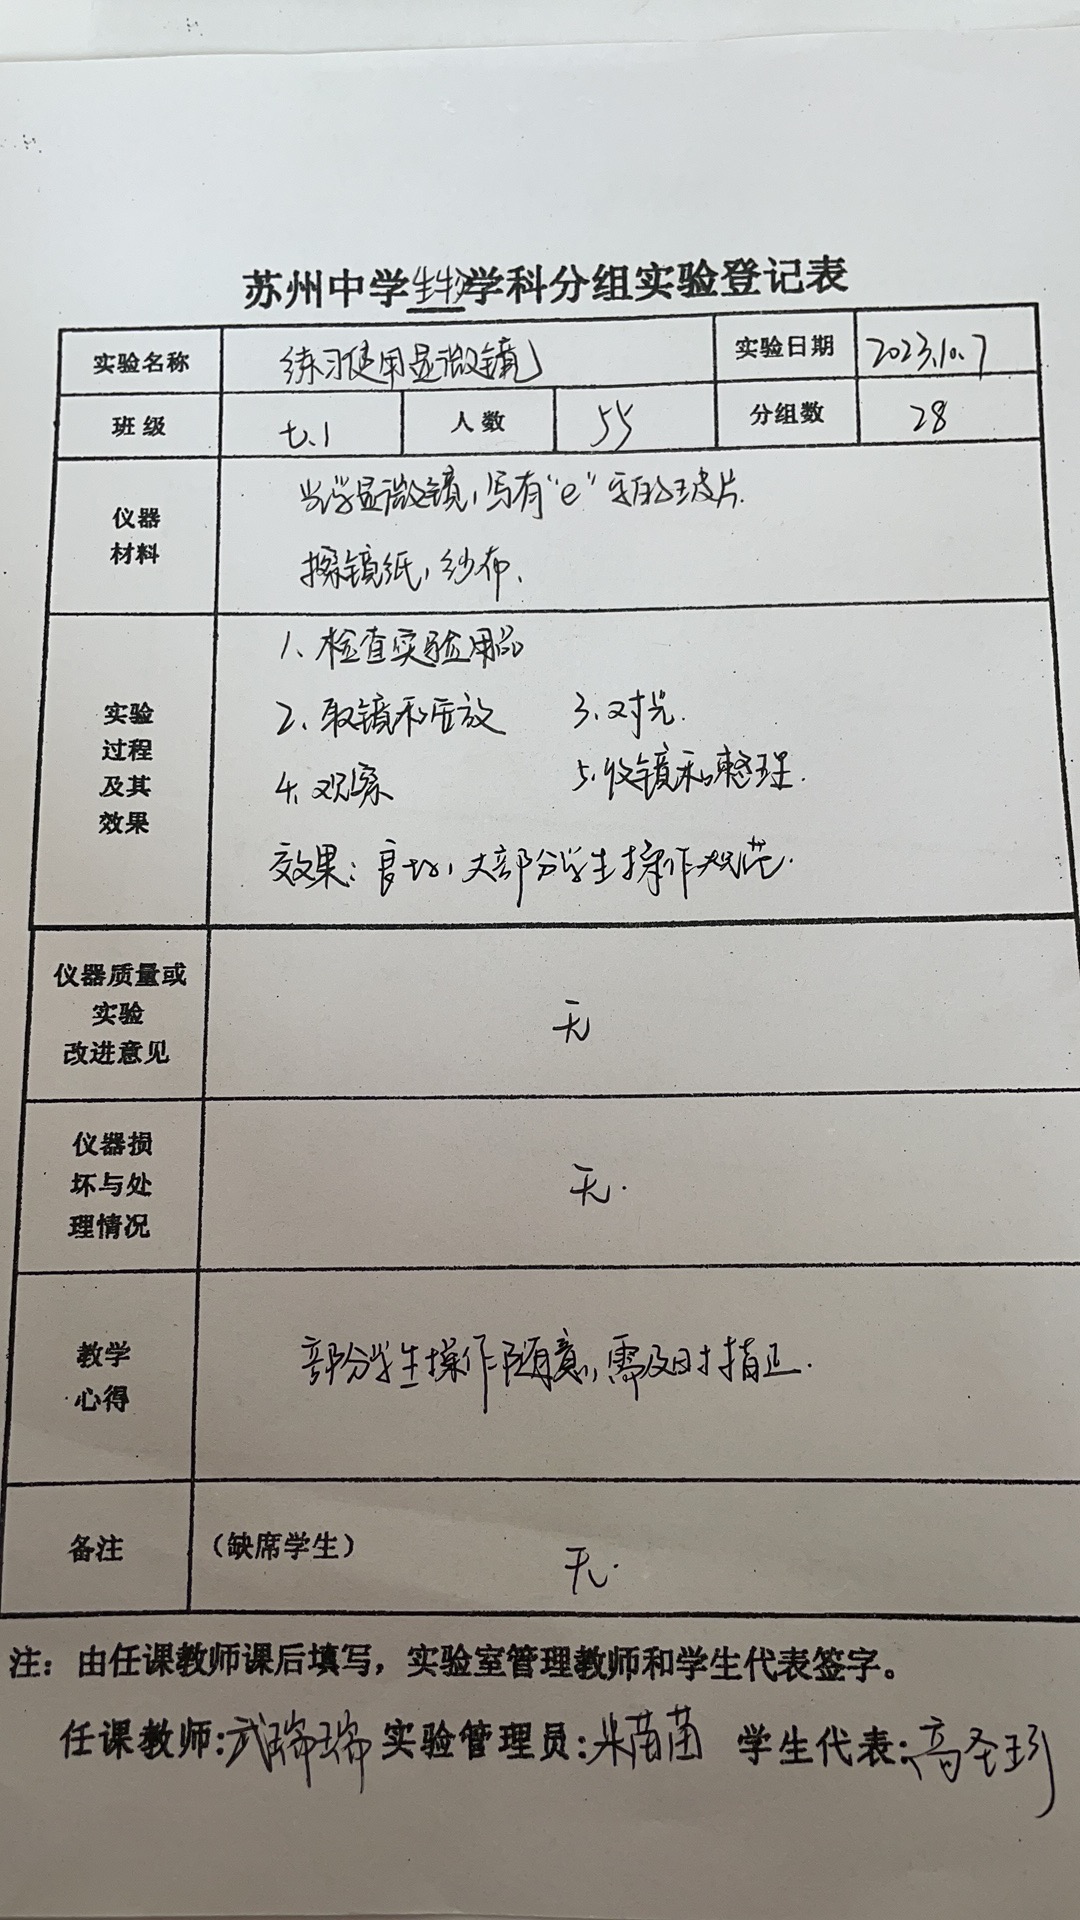 苏州中学生物学科分组实验登记表
实验名称 练习使用显微镜 实验日期 2023.10.7
班级 七.1 人数 55 分组数 28
仪器
材料
光学显微镜，写有“e”字的玻片.
擦镜纸，纱布、
实验
过程
及其
效果
1、检查实验用品
2、取镜和安放 3、对光.
4、观察 5、收镜和整理.
效果：良好，大部分学生操作规范.
仪器质量或
实验
改进意见
无
仪器损
坏与处
理情况
无.
教学
心得
部分学生操作随意，需及时指正.
备注 （缺席学生） 无.
注：由任课教师课后填写，实验室管理教师和学生代表签字。
任课教师：武瑞瑞 实验管理员：苗苗 学生代表：高圣